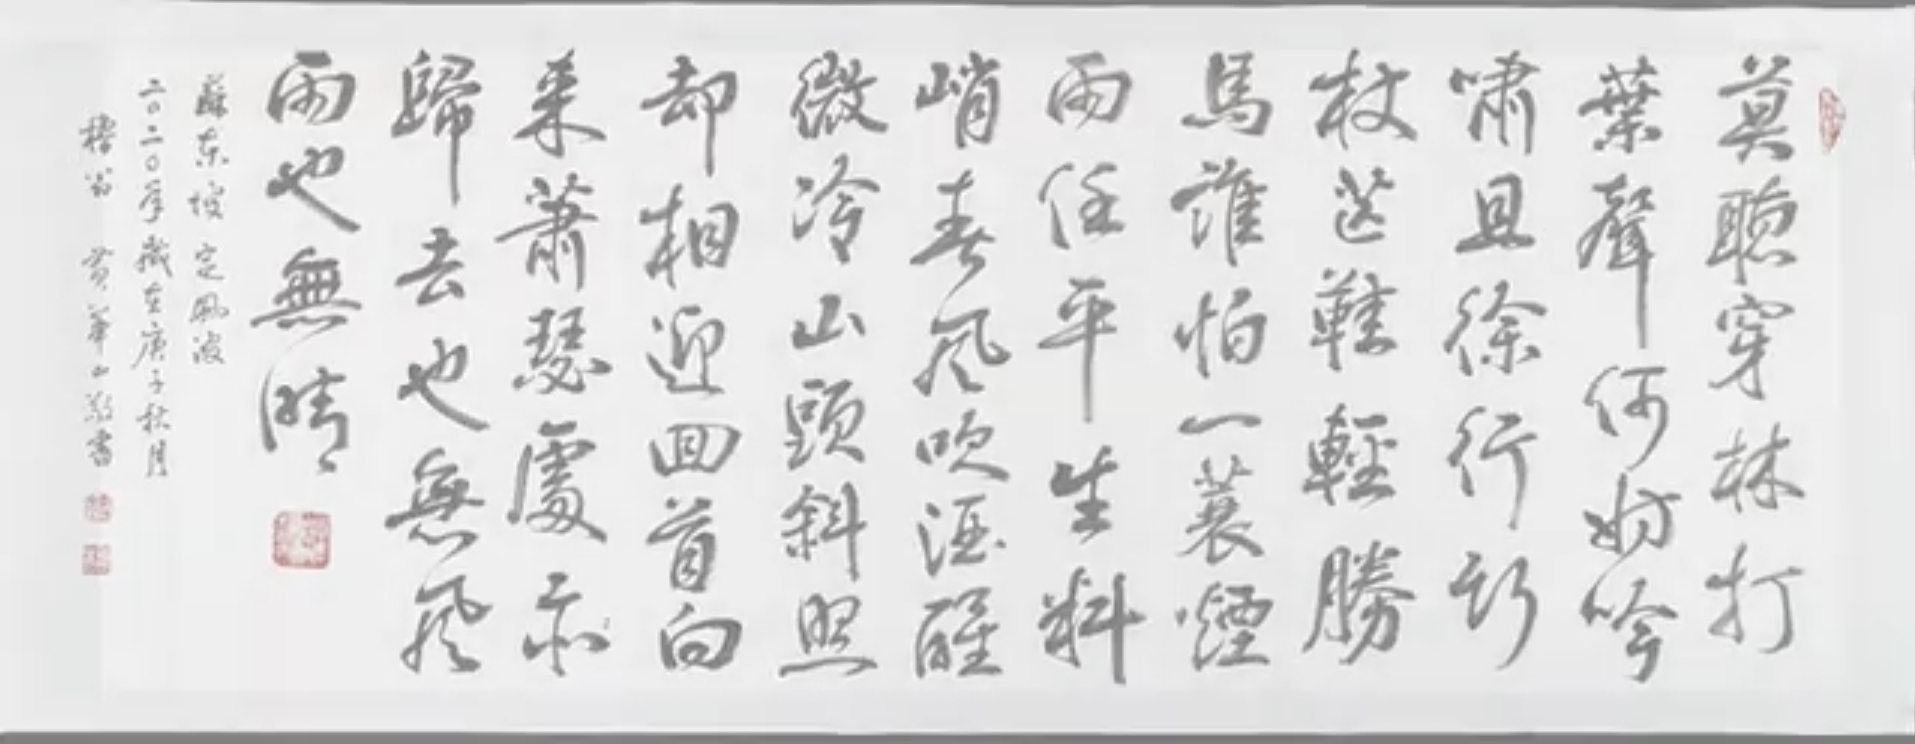 莫聽穿林打
葉聲何妨吟
嘯且徐行竹
杖芒鞋輕勝
馬誰怕一蓑煙
雨任平生料
峭春风吹酒醒
微冷山頭斜照
却相迎回首向
来蕭瑟處亦
歸去也無风
雨也無晴
蘇东坡 定風波
二〇二〇年歲在庚子秋月
翁 黄華山敬書